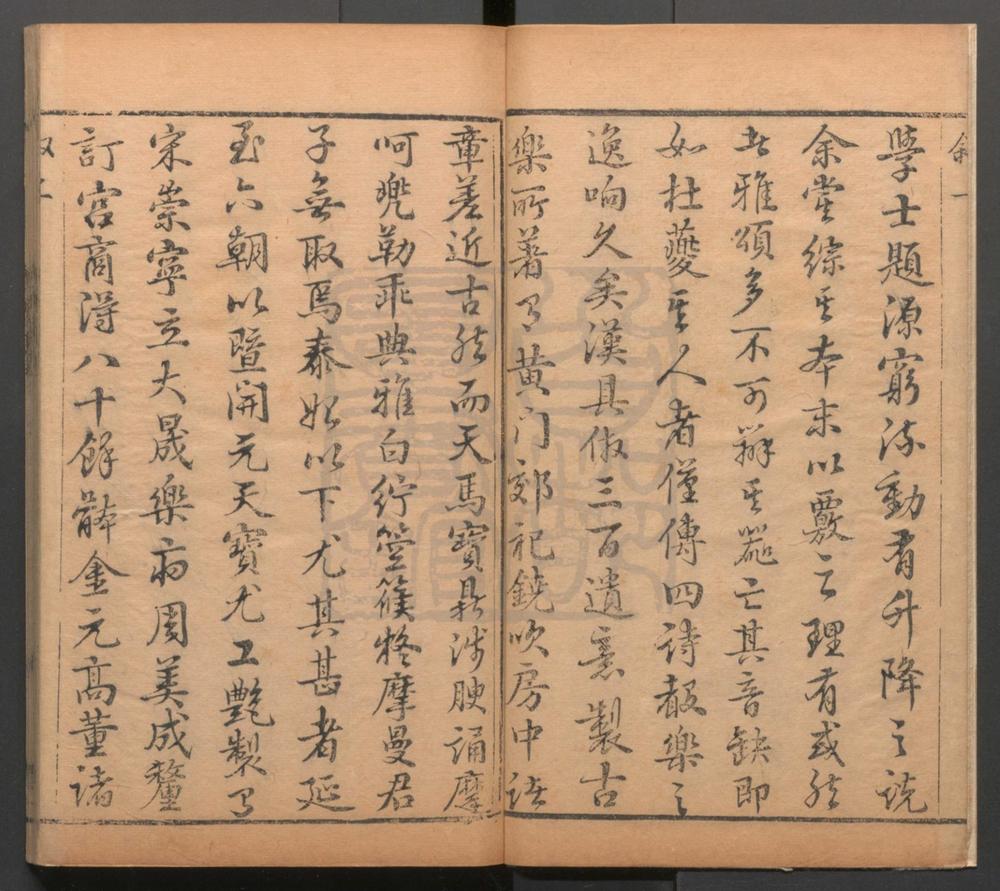 學士題源窮流動有升降之説
余嘗綜其本末以覈之理有或然
者雅頌多不可辯其器亡其音缺即
如杜夔其人者僅傳四詩聲樂之
逸响久矣漢具俶三百遺意製古
樂所著有黄门郊祀鐃吹房中諸
章差近古然而天馬寶鼎涉腴誦摩
呵兜勒乖典雅白紵箜篌終摩曼君
子無取焉泰始以下尤其甚者延
至六朝以暨開元天寶尤工艷製了
宋崇寧立大晟樂府周美成釐
訂宮商得八十餘骵金元高董諸